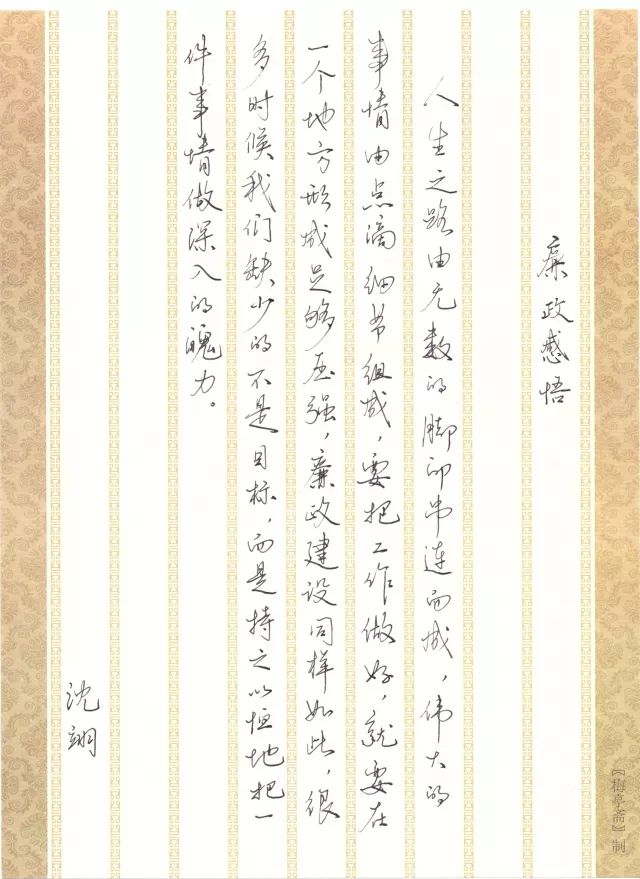 廉政感悟
人生之路由无数的脚印串连而成，伟大的
事情由点滴细节组成，要把工作做好，就要在
一个地方形成足够压强，廉政建设同样如此，很
多时候我们缺少的不是目标，而是持之以恒地把一
件事情做深入的魄力。
沈翊
《梅亭斋》制